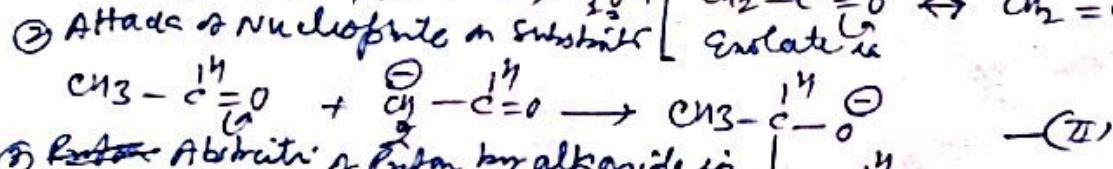 CH2 – C = O ↔ CH2 =
② Attack of Nucleophile on Substrate [ Enolate is
H H H
CH3 – C = O + ⊖CH2 – C = O → CH3 – C – O⊖ —(II)
Abstraction of Proton by alkoxide is H